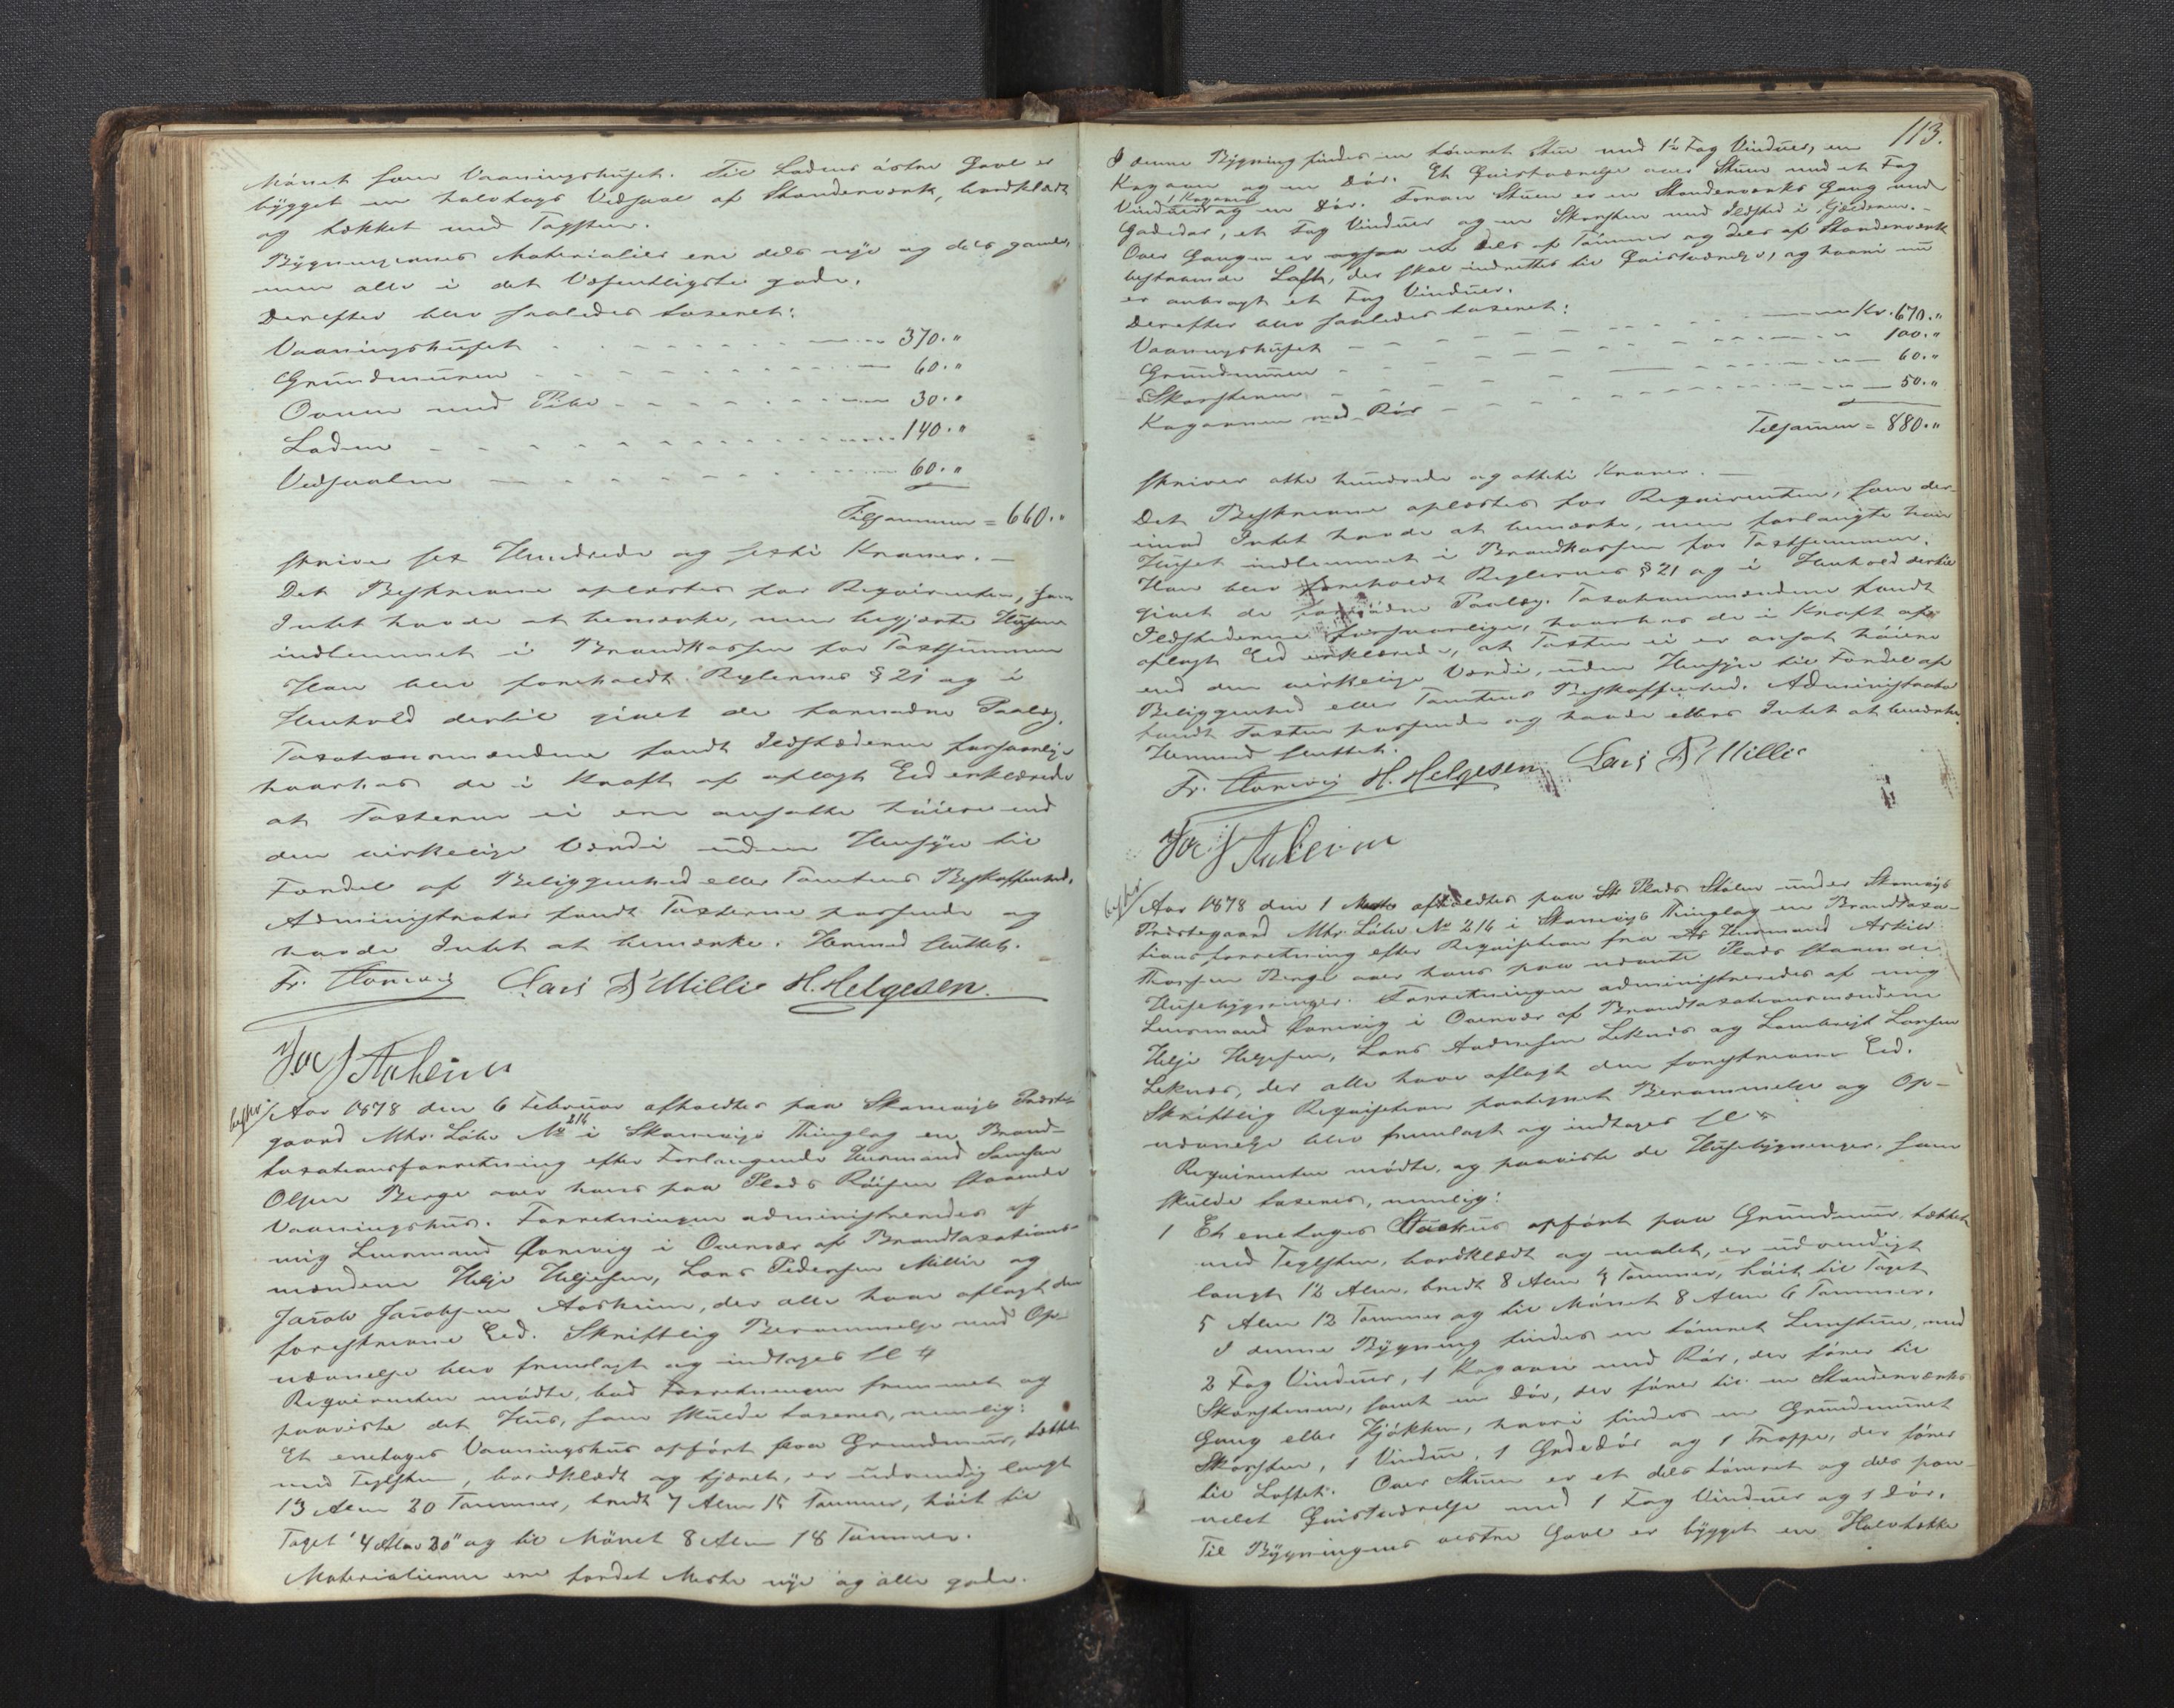 Mønet som Vaaningshuset. Til Ladens østre Gavl er
bygget en halvtags Vedsval af Standerværk, bordklædt
og tækket med Tagsten.
Bygningernes Materialier ere dels nye og dels gamle,
men alle i det Væsentligste gode.
Derefter blev saaledes taxeret:
Vaaningshuset 370."
Grundmuren 60."
Ovnen med Pibe 30."
Laden 140."
Vedsvalen 60."
Tilsammen = 660."
skriver sex Hundrede og sexti Kroner. –
Det Beskrevne oplæstes for Reqvirenten, som
Intet havde at bemærke, men begjærte Husene
indlemmet i Brandkassen for Taxtsummen
Han blev foreholdt Reglernes § 21 og i
Henhold dertil givet de fornødne Paalæg.
Taxationsmændene fandt Ildstæderne forsvarlige
hvorhos de i Kraft af aflagt Eed erklærede
at Taxterne ei ere ansatte høiere end
den virkelige Værdi uden Hensyn til
Fordel af Beliggenhed eller Tomtens Beskaffenhed.
Administrator fandt Taxterne passende og
havde Intet at bemærke. Hermed sluttet.
Fr. Qvrevig Lars P Millie H. Helgesen.
Joc J Aaheim
beskr. Aar 1878 den 6 Februar afholdtes paa Skonevigs Præste-
gaard Mtr. Løbe No 216 i Skonevigs Thinglag en Brand-
taxationsforretning efter Forlangende Husmand Samson
Olsen Berge over hans paa Plads Røisen staaende
Vaaningshus. Forretningen administreredes af
mig Lensmand Qvrevig i Overvær af Brandtaxations-
mændene Helje Heljesen, Lars Pedersen Millie og
Jacob Jacobsen Aarheim, der alle have aflagt den
foreskrevne Eed. Skriftlig Berammelse med Op-
nævnelse blev fremlagt og indtages sl 4
Reqvirenten mødte, bad Forretningen fremmet og
paaviste det Hus, som skulde taxeres, nemlig:
Et eenetages Vaaningshus opført paa Grundmuur, tækket
med Teglsten, bordklædt og tjæret, er udvendig langt
13 Alen 20 Tommer, bredt 7 Alen 15 Tommer, høit til
Taget 4 Alen 20" og til Mønet 8 Alen 18 Tommer.
Materialierne ere fordet Meste nye og alle gode.
113.
I denne Bygning findes en tømret Stue med 1½ Fag Vinduer, en
Kogovn og en Dør. Et Qvistværelse over Stuen med et Fag
1 Kogovn
Vinduer og en Dør. Foran Stuen er en Standerværks Gang med
Gadedør, et Fag Vinduer og en Skorsten med Ildsted i Kjælderen. –
Over Gangen er ogsaa et dels af Tømmer og dels af Standerværk
bestaaende Loft, der skal indrettes til Qvistværelse, og hvori nu
er anbragt et Fag Vinduer.
Derefter blev saaledes taxeret:
Vaaningshuset Kr. 670."
Grundmuren 100."
Skorstenen 60."
Kogovnen med Rør 50."
Tilsammen = 880."
skriver otte hundrede og otteti Kroner. –
Det Beskrevne oplæstes for Reqvirenten, som der-
imod Intet havde at bemærke, men forlangte han
Huset indlemmet i Brandkassen for Taxtsummen.
Han blev foreholdt Reglernes § 21 og i Henhold dertil
givet de fornødne Paalæg. Taxationsmændene fandt
Ildstederne forsvarlige, hvorhos de i Kraft af
aflagt Eed erklærede, at Taxten ei er ansat høiere
end den virkelige Værdi, uden Hensyn til Fordel af
Beliggenhed eller Tomtens Beskaffenhed. Administrator
fandt Taxten passende og havde ellers Intet at bemærke.
Hermed sluttet.
Fr. Qvrevig H. Helgesen Lars P Millie
Joc J Aaheim
beskr. Aar 1878 den 1 Marts afholdtes paa Plads Stølen under Skonevigs
Præstegaard Mtr. Løbe No 216 i Skonevigs Thinglag en Brandtaxa-
tionsforretning efter Reqvisition fra Husmand Askild
Thorsen Berge over hans paa nævnte Plads staaende
Husebygninger. Forretningen administreredes af mig
Lensmand Qvrevig i Overvær af Brandtaxationsmændene
Helje Heljesen, Lars Andresen Leknes og Lambregt Larsen
Leknes, der alle have aflagt den foreskrevne Eed.
Skriftlig Reqvisition paategnet Berammelse og Op-
nævnelse blev fremlagt og indtages sl
Reqvirenten mødte, og paaviste de Husebygninger, som
skulde taxeres, nemlig:
1 Et eenetages Stuehus opført paa Grundmuur, tækket
med Teglsten, bordklædt og malet, er udvendigt
langt 12 Alen, bredt 8 Alen 4 Tommer, høit til Taget
5 Alen 12 Tommer og til Mønet 8 Alen 6 Tommer.
I denne Bygning findes en tømret Lemstue, med
2 Fag Vinduer, 1 Kogovn med Rør, der fører til
Skorstenen, samt en Dør, der fører til en Standerværks
Gang eller Kjøkken, hvori findes en Grundmuret
Skorsten, 1 Vindue, 1 Gadedør og 1 Trappe, der fører
til Loftet. Over Stuen er et dels tømret og dels pan-
nelet Qvistværelse med 1 Fag Vinduer og 1 Dør.
Til Bygningens vestre Gavl er bygget en Halvtække